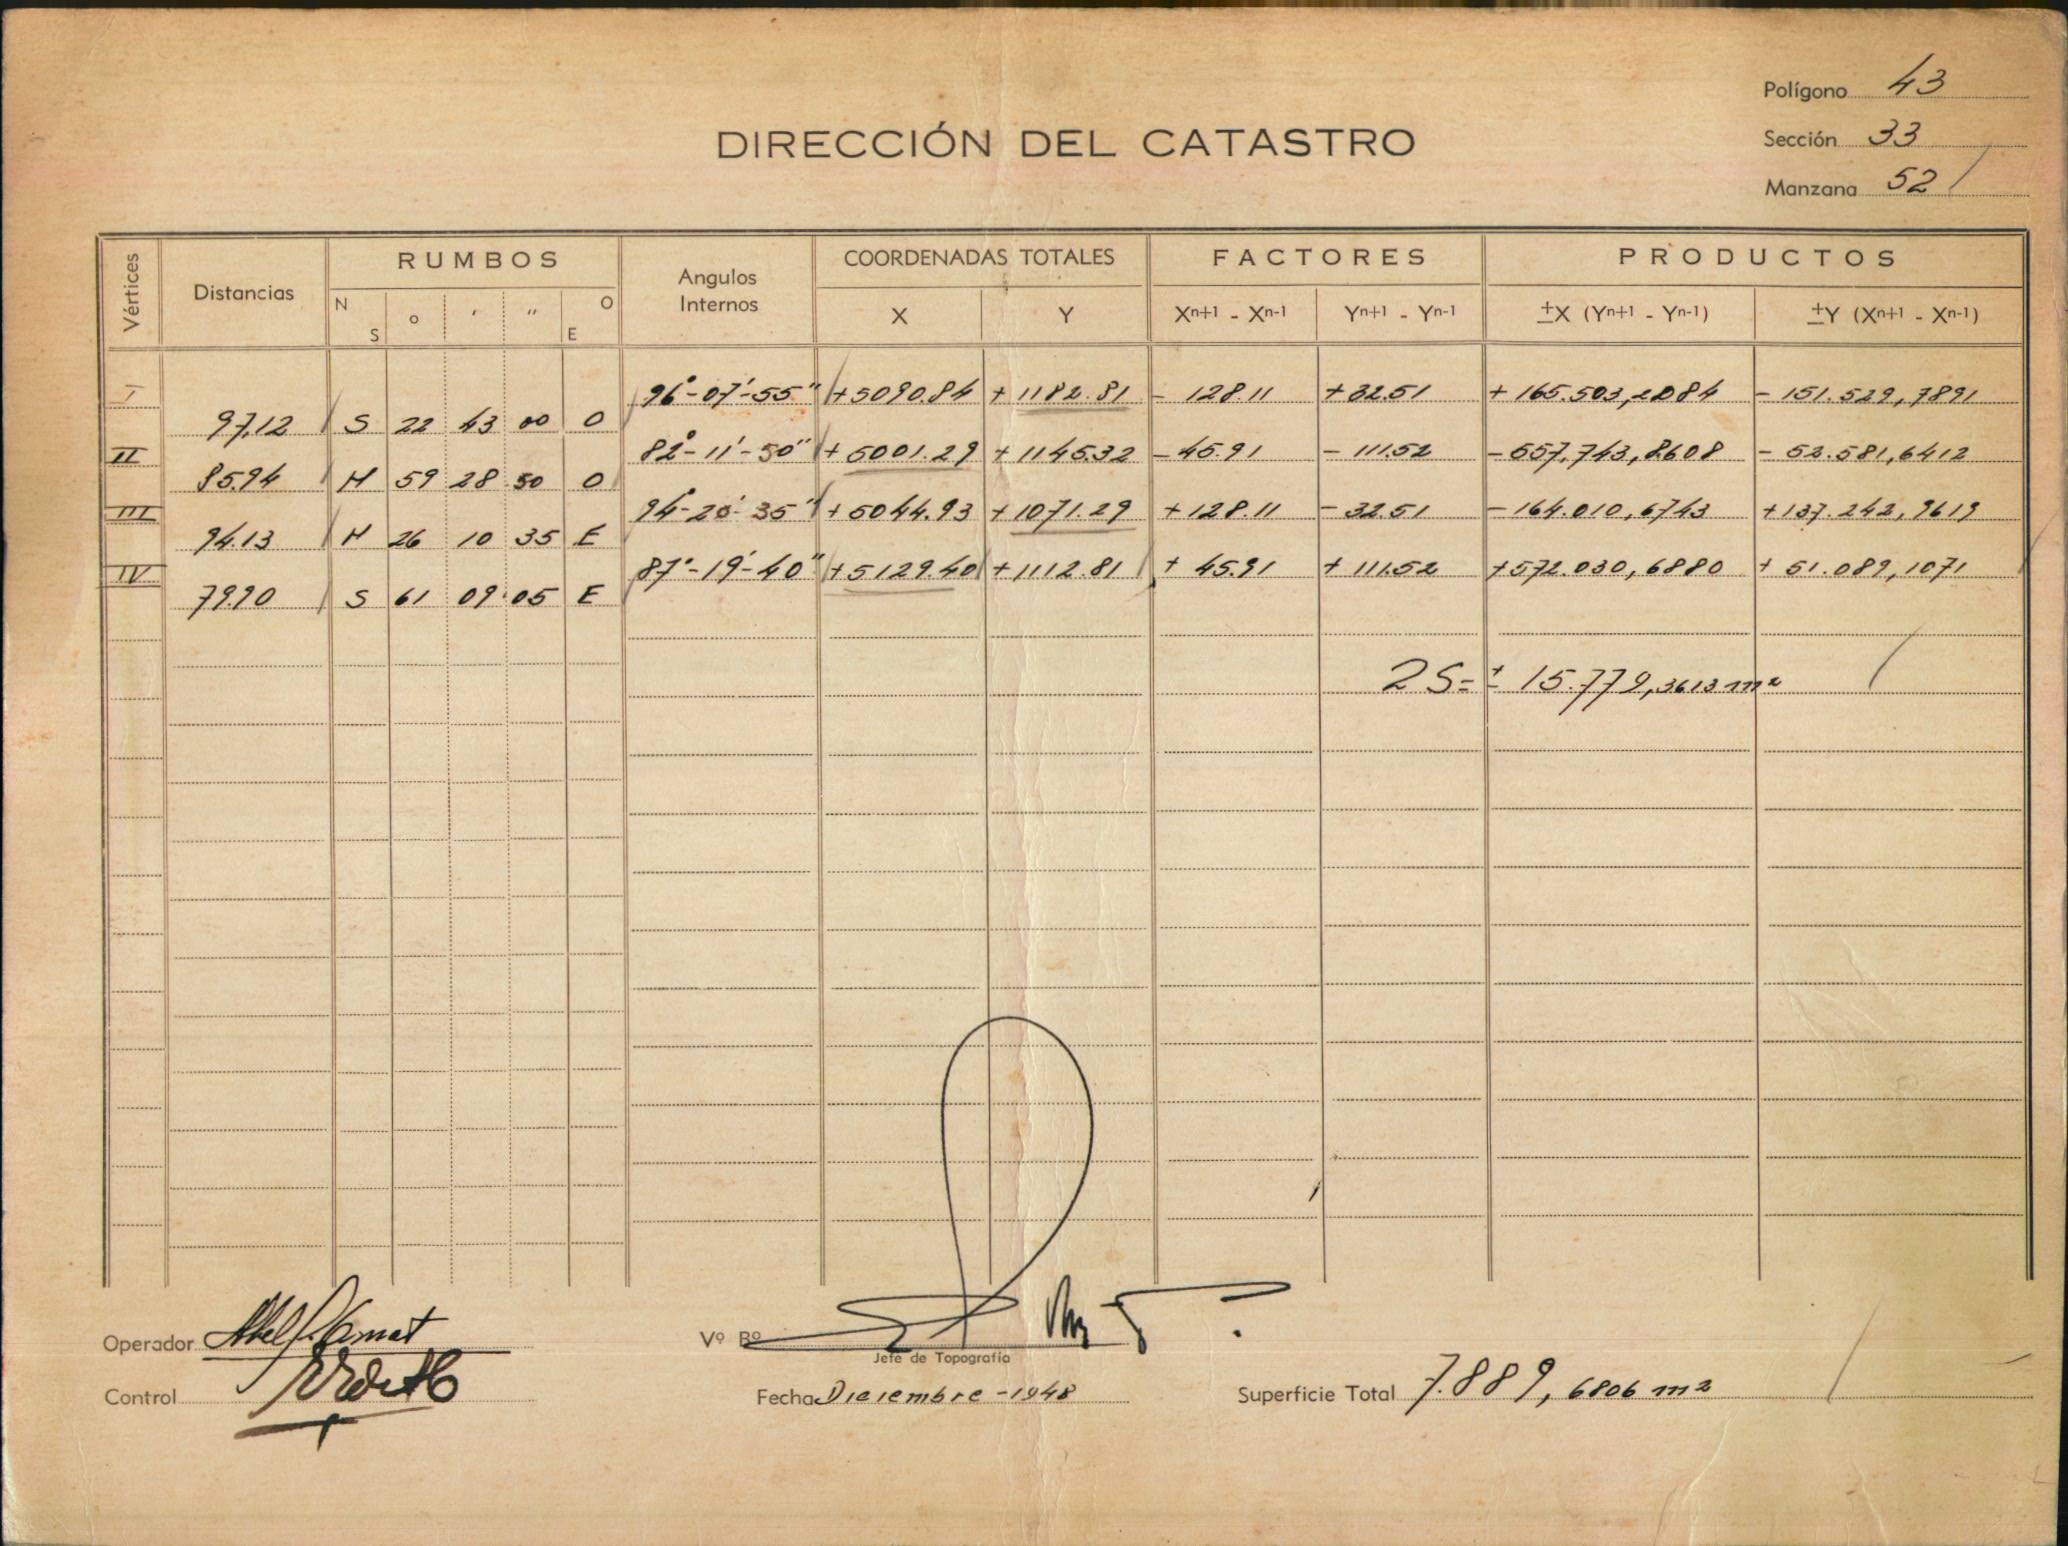 Polígono 43
DIRECCIÓN DEL CATASTRO
Sección 33
Manzana 52
Vértices Distancias RUMBOS Angulos Internos COORDENADAS TOTALES FACTORES PRODUCTOS
N S ° ' " O E X Y Xn+1 - Xn-1 Yn+1 - Yn-1 ±X (Yn+1 - Yn-1) ±Y (Xn+1 - Xn-1)
I 96°-07'-55" +5090.84 +1182.81 - 128.11 +32.51 +165.503,2084 - 151.529,7891
97,12 S 22 43 00 O
II 82°-11'-50" +5001.29 +1145.32 -45.91 - 111.52 -557.743,8608 - 52.581,6412
85.94 N 59 28 50 O
III 94°-20'-35" +5044.93 +1071.29 +128.11 - 32.51 -164.010,6743 +137.242,9619
94.13 N 26 10 35 E
IV 87°-19'-40" +5129.40 +1112.81 + 45.91 + 111.52 +572.030,6880 + 51.089,1071
79.90 S 61 09 05 E
2S= ± 15.779,3613 m²
Operador
Vº Bº
Jefe de Topografía
Control
Fecha Diciembre -1948
Superficie Total 7.889,6806 m2